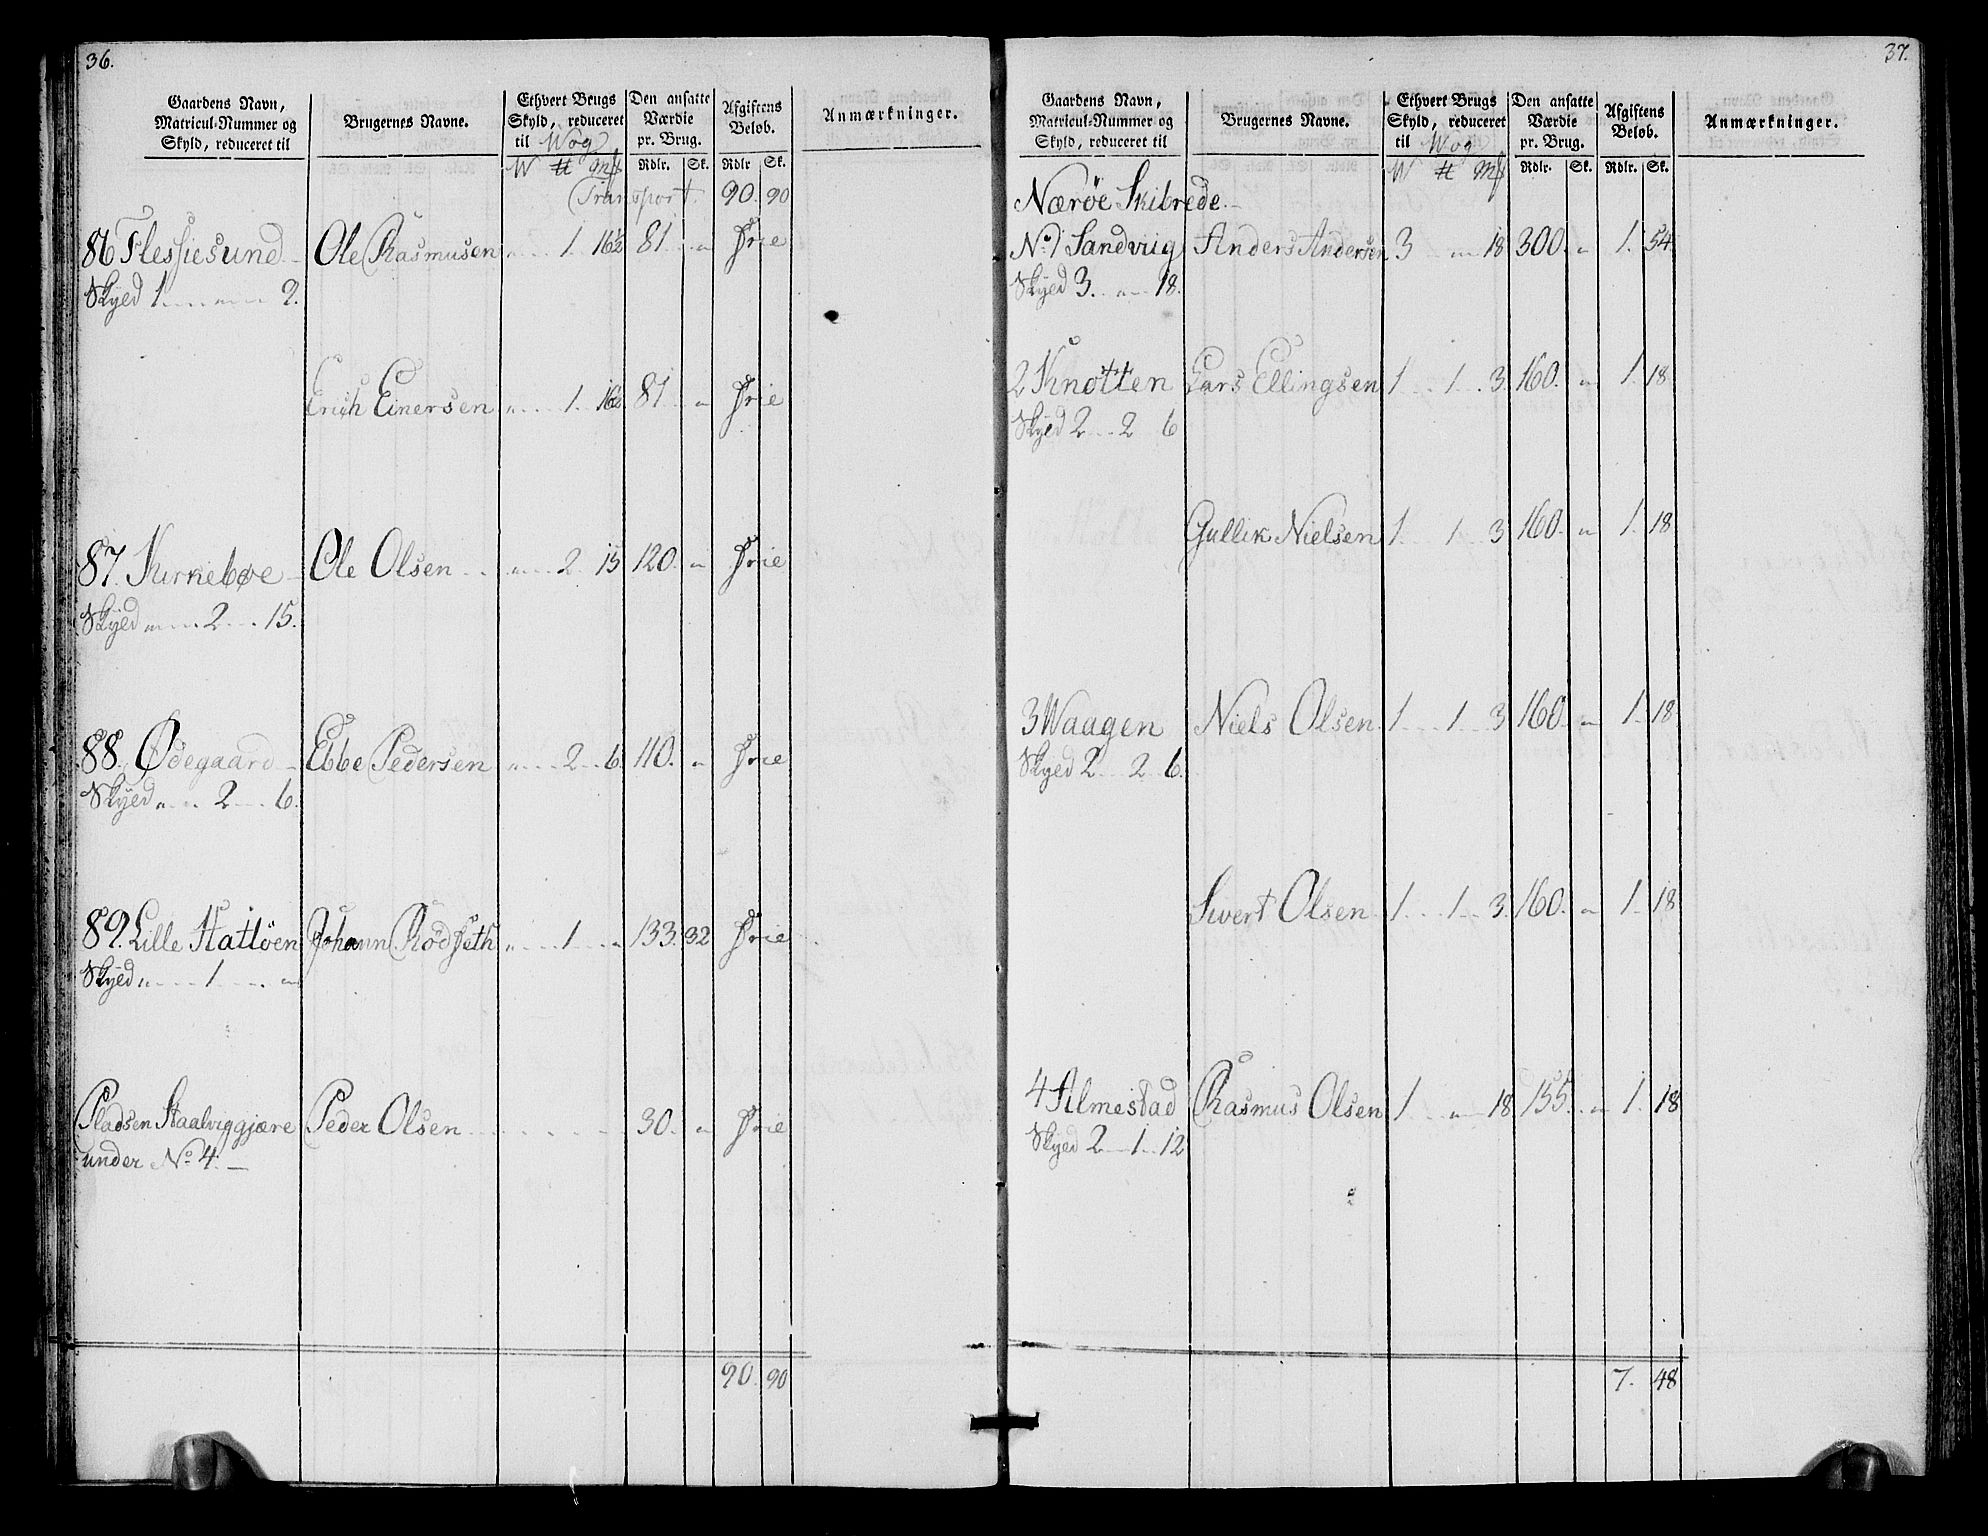 36.
Gaardens Navn, Matricul-Nummer og Skyld, reduceret til
Brugernes Navne.
Ethvert Brugs Skyld, reduceret til Wog
W ℔ mk
Den ansatte Værdie pr. Brug.
Rdlr. Sk.
Afgiftens Beløb.
Rdlr Sk.
Anmærkninger.
Transport. 90. 90
86 Flessiesund Ole Rasmusen " 1 16½ 81 " Frie
Skyed 1 " 9.
Erich Einersen " 1 16½ 81 " Frie
87. Kirkebøe Ole Olsen " 2 15 120. " Frie
Skyed " 2 15.
88. Ødegaard Ebbe Pedersen " 2 6 110. " Frie
Skyed " 2 6.
89. Lille Hatløen Johann Rødseth " 1 " 133. 32 Frie
Skyed " 1 "
Pladsen Staalviggjære Peder Olsen 30. " Frie
under No 4.
90. 90
37.
Gaardens Navn, Matricul-Nummer og Skyld, reduceret til
Brugernes Navne.
Ethvert Brugs Skyld, reduceret til Wog
W ℔ mk
Den ansatte Værdie pr. Brug.
Rdlr. Sk.
Afgiftens Beløb.
Rdlr. Sk.
Anmærkninger.
Nærøe Skibrede
No 1 Sandviig Anders Andersen 3 " 18 300. " 1. 54
Skyed 3. " 18.
2 Knotten Lars Ellingsen 1 1 3 160. " 1. 18
Skyed 2 2 6
Gullik Nielsen 1 1 3 160. " 1. 18
3 Waagen Niels Olsen 1 1 3 160. " 1. 18
Skyed 2 2 6.
Sivert Olsen 1 1 3 160. " 1 18
4 Almestad Rasmus Olsen 1 " 18 155. " 1. 18
Skyed 2 1 12
7. 48